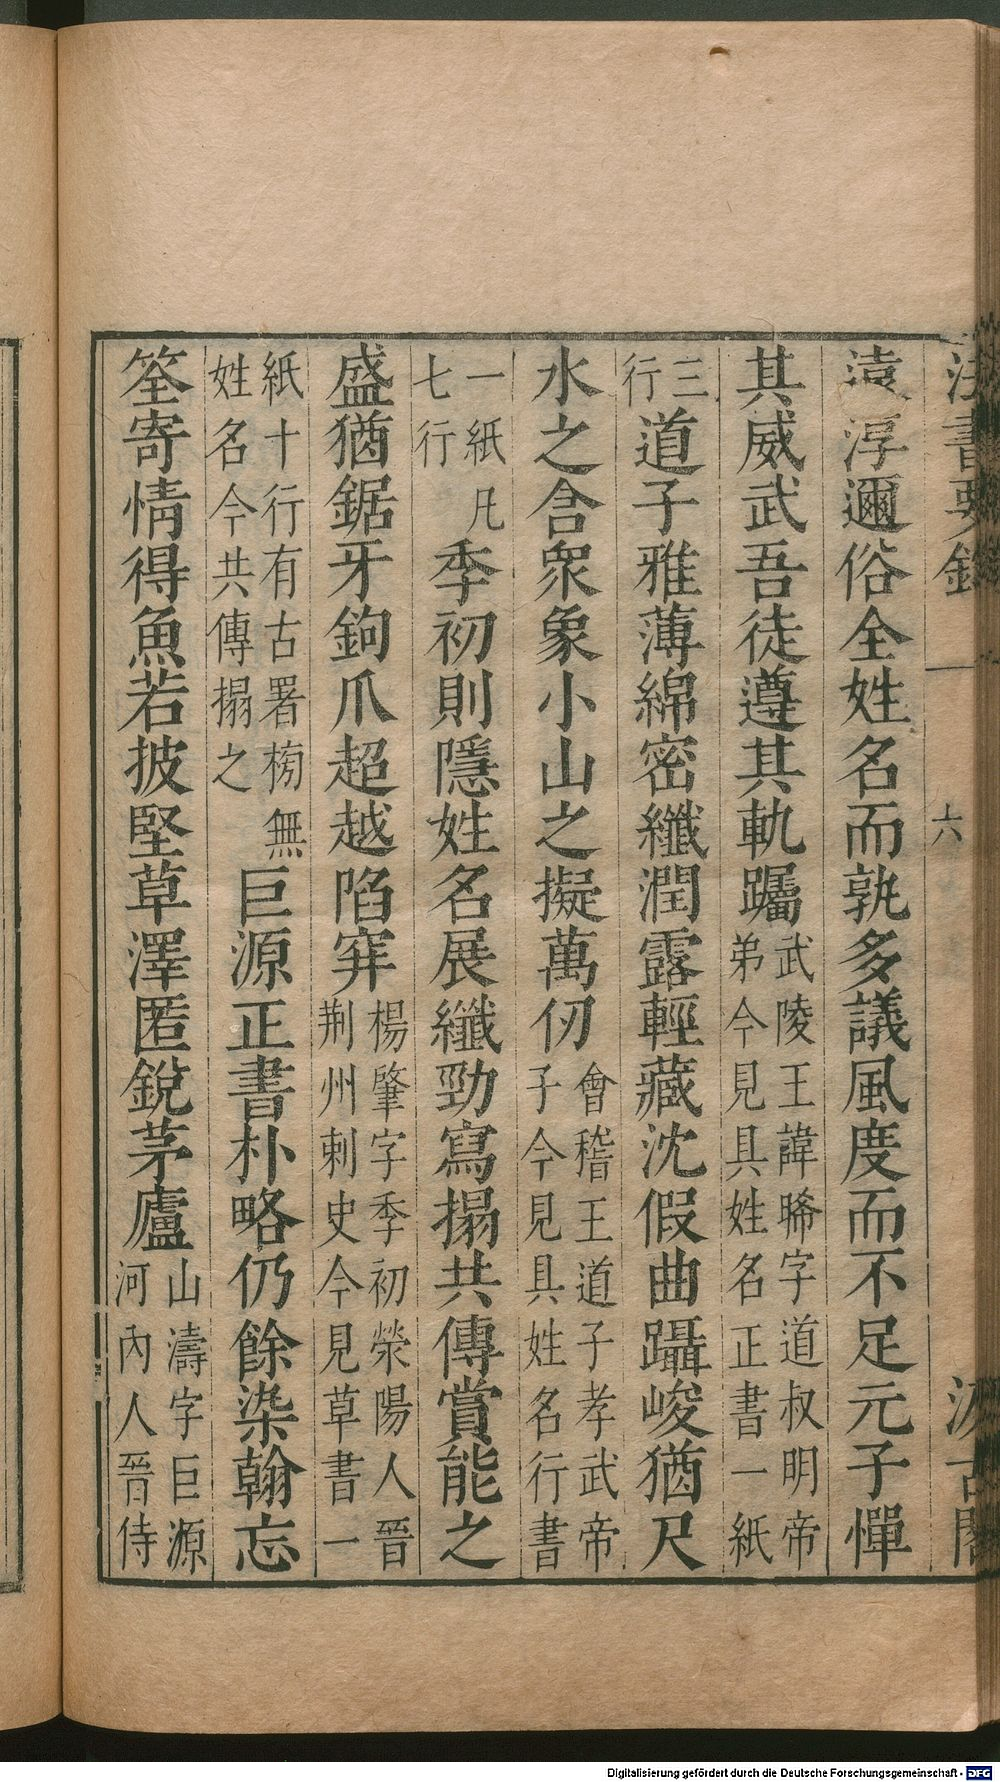 法書要錄 一 六 汲古閣
遠淳邇俗全姓名而孰多議風度而不足元子憚
其威武吾徒遵其軌躅武陵王諱晞字道叔明帝弟今見具姓名正書一紙
三行道子雅薄綿密纖潤露輕藏沈假曲躡峻猶尺
水之含衆象小山之擬萬仞會稽王道子孝武帝子今見具姓名行書
一紙凡七行季初則隱姓名展纖勁寫搨共傳賞能之
盛猶鋸牙鉤爪超越陷穽楊肇字季初滎陽人晉荆州刺史今見草書一
紙十行有古署牓無姓名今共傳搨之巨源正書朴略仍餘染翰忘
筌寄情得魚若披堅草澤匿銳茅廬山濤字巨源河內人晉侍
Digitalisierung gefördert durch die Deutsche Forschungsgemeinschaft - DFG